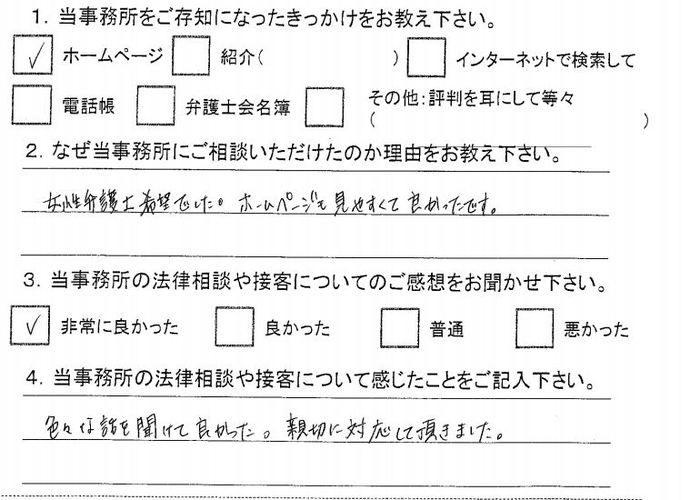 1. 当事務所をご存知になったきっかけをお教え下さい。
ホームページ 紹介( ) インターネットで検索して
電話帳 弁護士会名簿 その他:評判を耳にして等々
( )
2. なぜ当事務所にご相談いただけたのか理由をお教え下さい。
女性弁護士希望でした。ホームページも見やすくて良かったです。
3. 当事務所の法律相談や接客についてのご感想をお聞かせ下さい。
非常に良かった 良かった 普通 悪かった
4. 当事務所の法律相談や接客について感じたことをご記入下さい。
色々な話を聞けて良かった。親切に対応して頂きました。